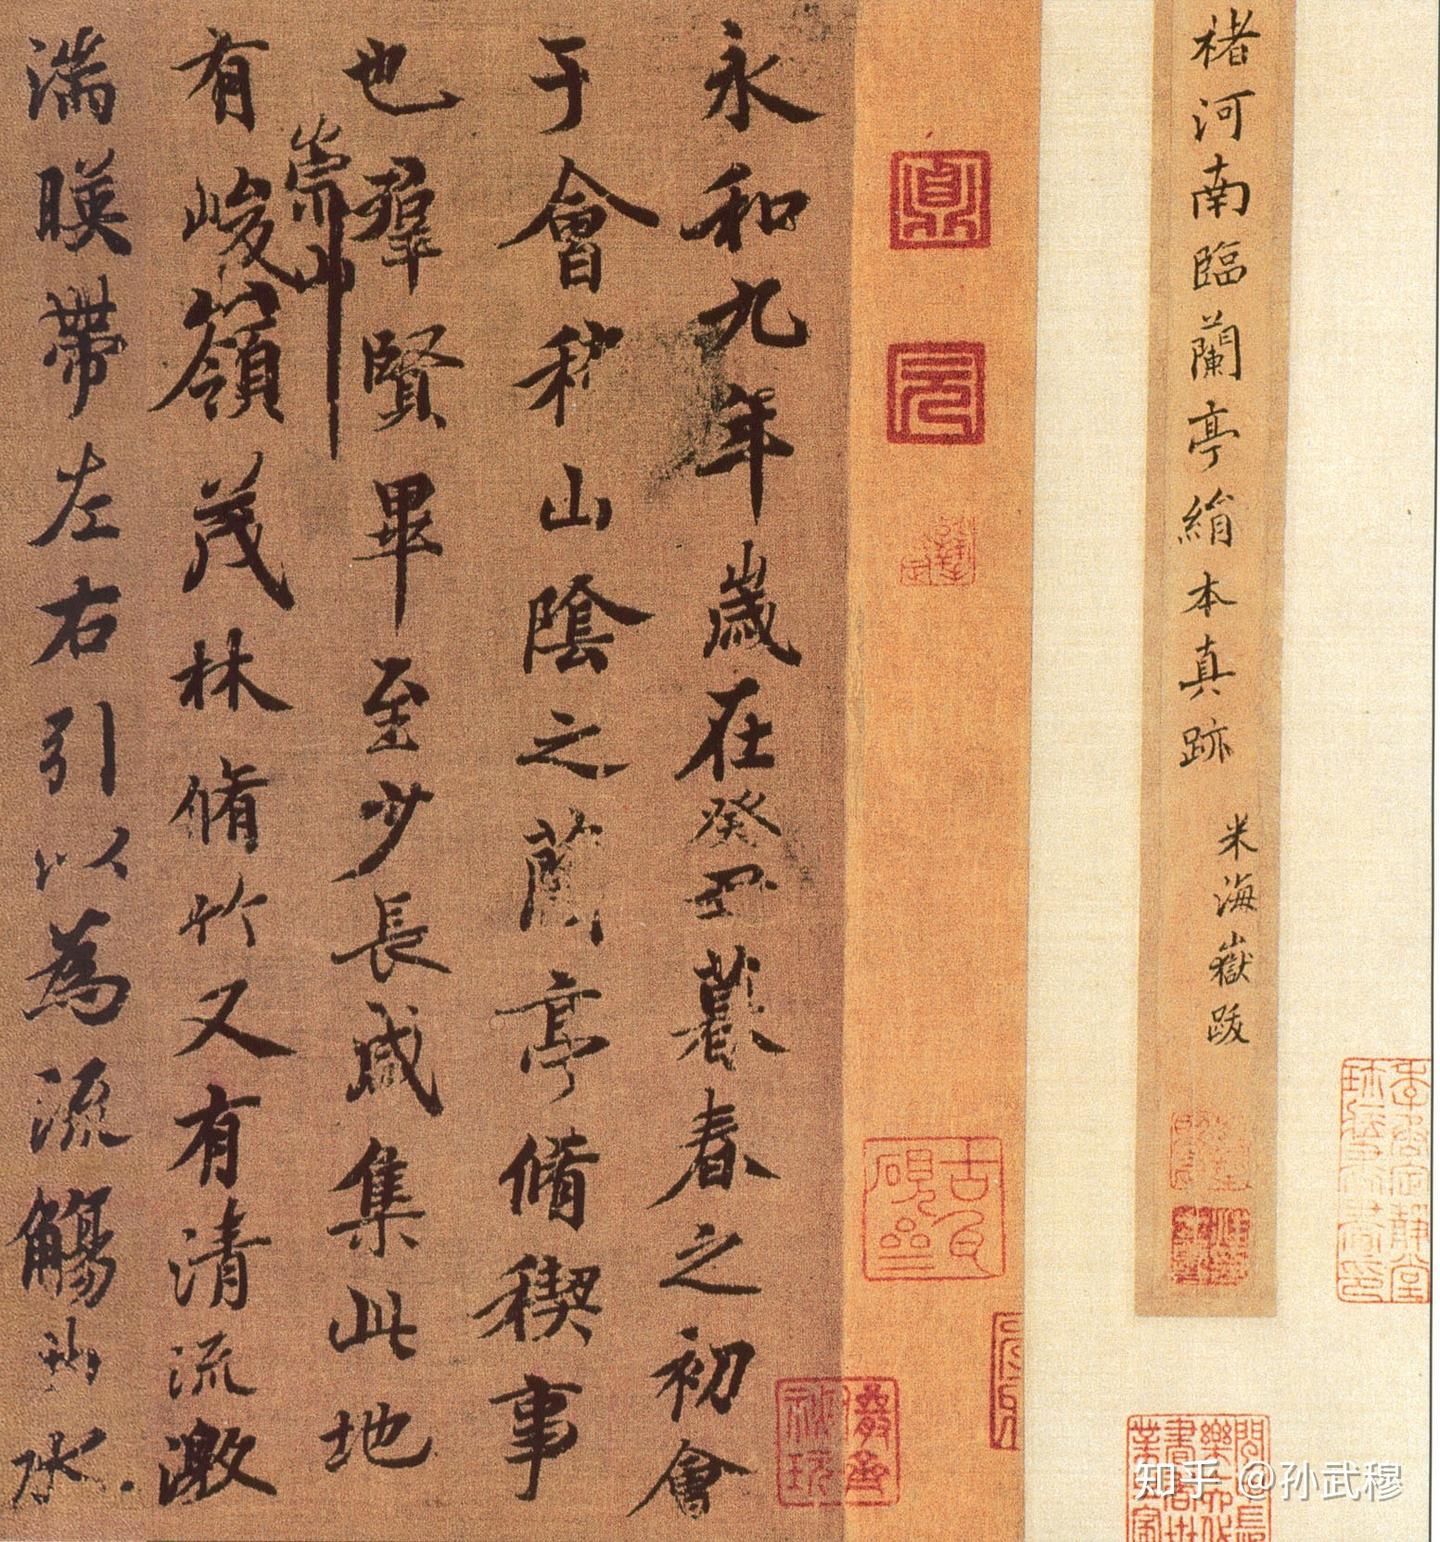 褚河南臨蘭亭絹本真跡
米海嶽跋
永和九年歲在癸丑暮春之初會
于會稽山陰之蘭亭脩稧事
也羣賢畢至少長咸集此地
崇山
有峻嶺茂林脩竹又有清流激
湍暎帶左右引以為流觴曲水
知乎 @孙武穆